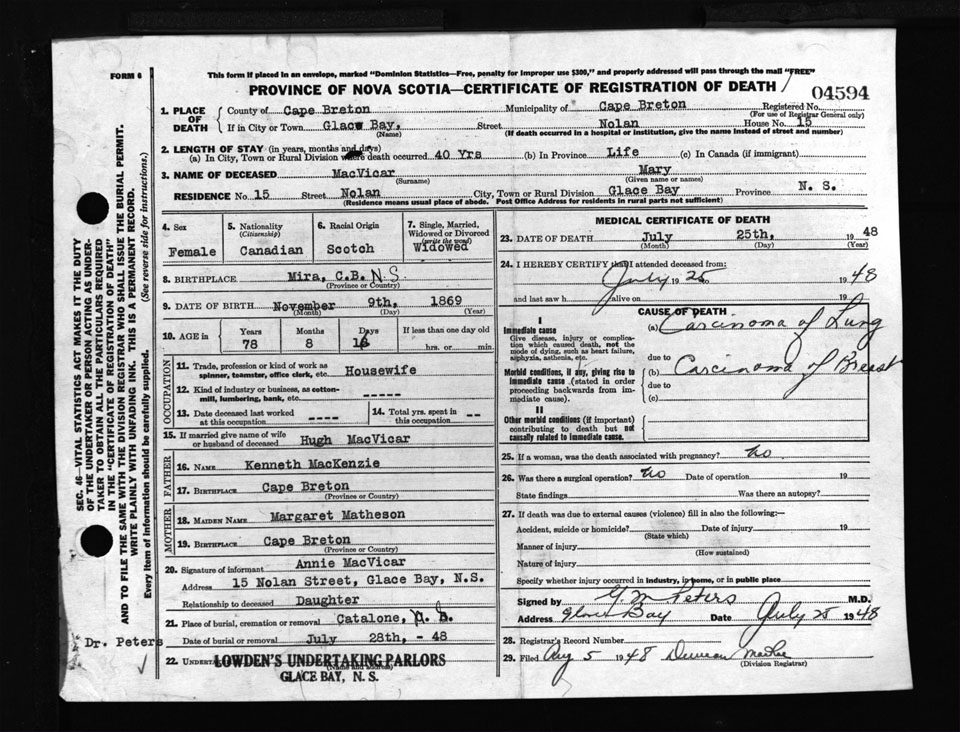 FORM 6
This form if placed in an envelope, marked "Dominion Statistics—Free, penalty for improper use $300," and properly addressed will pass through the mail "FREE"
PROVINCE OF NOVA SCOTIA—CERTIFICATE OF REGISTRATION OF DEATH
04594
1. PLACE OF DEATH
County of Cape Breton Municipality of Cape Breton Registered No.
(For use of Registrar General only)
If in City or Town Glace Bay, Street Nolan House No. 15
(Name) (If death occurred in a hospital or institution, give the name instead of street and number)
2. LENGTH OF STAY (in years, months and days)
(a) In City, Town or Rural Division where death occurred 40 Yrs (b) In Province Life (c) In Canada (if immigrant)
3. NAME OF DECEASED MacVicar Mary
(Surname) (Given name or names)
RESIDENCE No. 15 Street Nolan City, Town or Rural Division Glace Bay Province N. S.
(Residence means usual place of abode. Post Office Address for residents in rural parts not sufficient)
SEC. 46—VITAL STATISTICS ACT MAKES IT THE DUTY
OF THE UNDERTAKER OR PERSON ACTING AS UNDER-
TAKER TO OBTAIN ALL THE PARTICULARS REQUIRED
IN THE "CERTIFICATE OF REGISTRATION OF DEATH"
AND TO FILE THE SAME WITH THE DIVISION REGISTRAR WHO SHALL ISSUE THE BURIAL PERMIT.
WRITE PLAINLY WITH UNFADING INK. THIS IS A PERMANENT RECORD.
Every item of information should be carefully supplied. (See reverse side for instructions.)
4. Sex
Female
5. Nationality
(Citizenship)
Canadian
6. Racial Origin
Scotch
7. Single, Married,
Widowed or Divorced
(write the word)
Widowed
8. BIRTHPLACE Mira, C.B. N.S.
(Province or Country)
9. DATE OF BIRTH November 9th, 1869
(Month) (Day) (Year)
10. AGE in
Years Months Days If less than one day old
78 8 16 hrs. or min.
OCCUPATION
11. Trade, profession or kind of work as
spinner, teamster, office clerk, etc. Housewife
12. Kind of industry or business, as cotton-
mill, lumbering, bank, etc. -----
13. Date deceased last worked
at this occupation ----
14. Total yrs. spent in
this occupation --
15. If married give name of wife
or husband of deceased Hugh MacVicar
FATHER
16. NAME Kenneth MacKenzie
17. BIRTHPLACE Cape Breton
(Province or Country)
MOTHER
18. MAIDEN NAME Margaret Matheson
19. BIRTHPLACE Cape Breton
(Province or Country)
20. Signature of informant Annie MacVicar
Address 15 Nolan Street, Glace Bay, N.S.
Relationship to deceased Daughter
21. Place of burial, cremation or removal Catalone, N. S.
Date of burial or removal July 28th, - 48
Dr. Peters
22. UNDERTAKER
(Name and address)
LOWDEN'S UNDERTAKING PARLORS
GLACE BAY, N. S.
MEDICAL CERTIFICATE OF DEATH
23. DATE OF DEATH July 25th, 1948
(Month) (Day) (Year)
24. I HEREBY CERTIFY that I attended deceased from:
July 25 19 to 1948
and last saw h alive on 19
CAUSE OF DEATH
I
Immediate cause
Give disease, injury or complica-
tion which caused death, not the
mode of dying, such as heart failure,
asphyxia, asthenia, etc.
(a) Carcinoma of Lung
due to
Morbid conditions, if any, giving rise to
immediate cause (stated in order
proceeding backwards from im-
mediate cause).
(b) Carcinoma of Breast
due to
(c)
II
Other morbid conditions (if important)
contributing to death but not
causally related to immediate cause.
25. If a woman, was the death associated with pregnancy? no
26. Was there a surgical operation? no Date of operation 19
State findings Was there an autopsy?
27. If death was due to external causes (violence) fill in also the following:—
Accident, suicide or homicide? Date of injury 19
(State which)
Manner of injury
(How sustained)
Nature of injury
Specify whether injury occurred in industry, in home, or in public place
Signed by G M Peters M.D.
Address Glace Bay Date July 25 1948
28. Registrar's Record Number
29. Filed Aug 5 1948 Duncan
(Division Registrar)